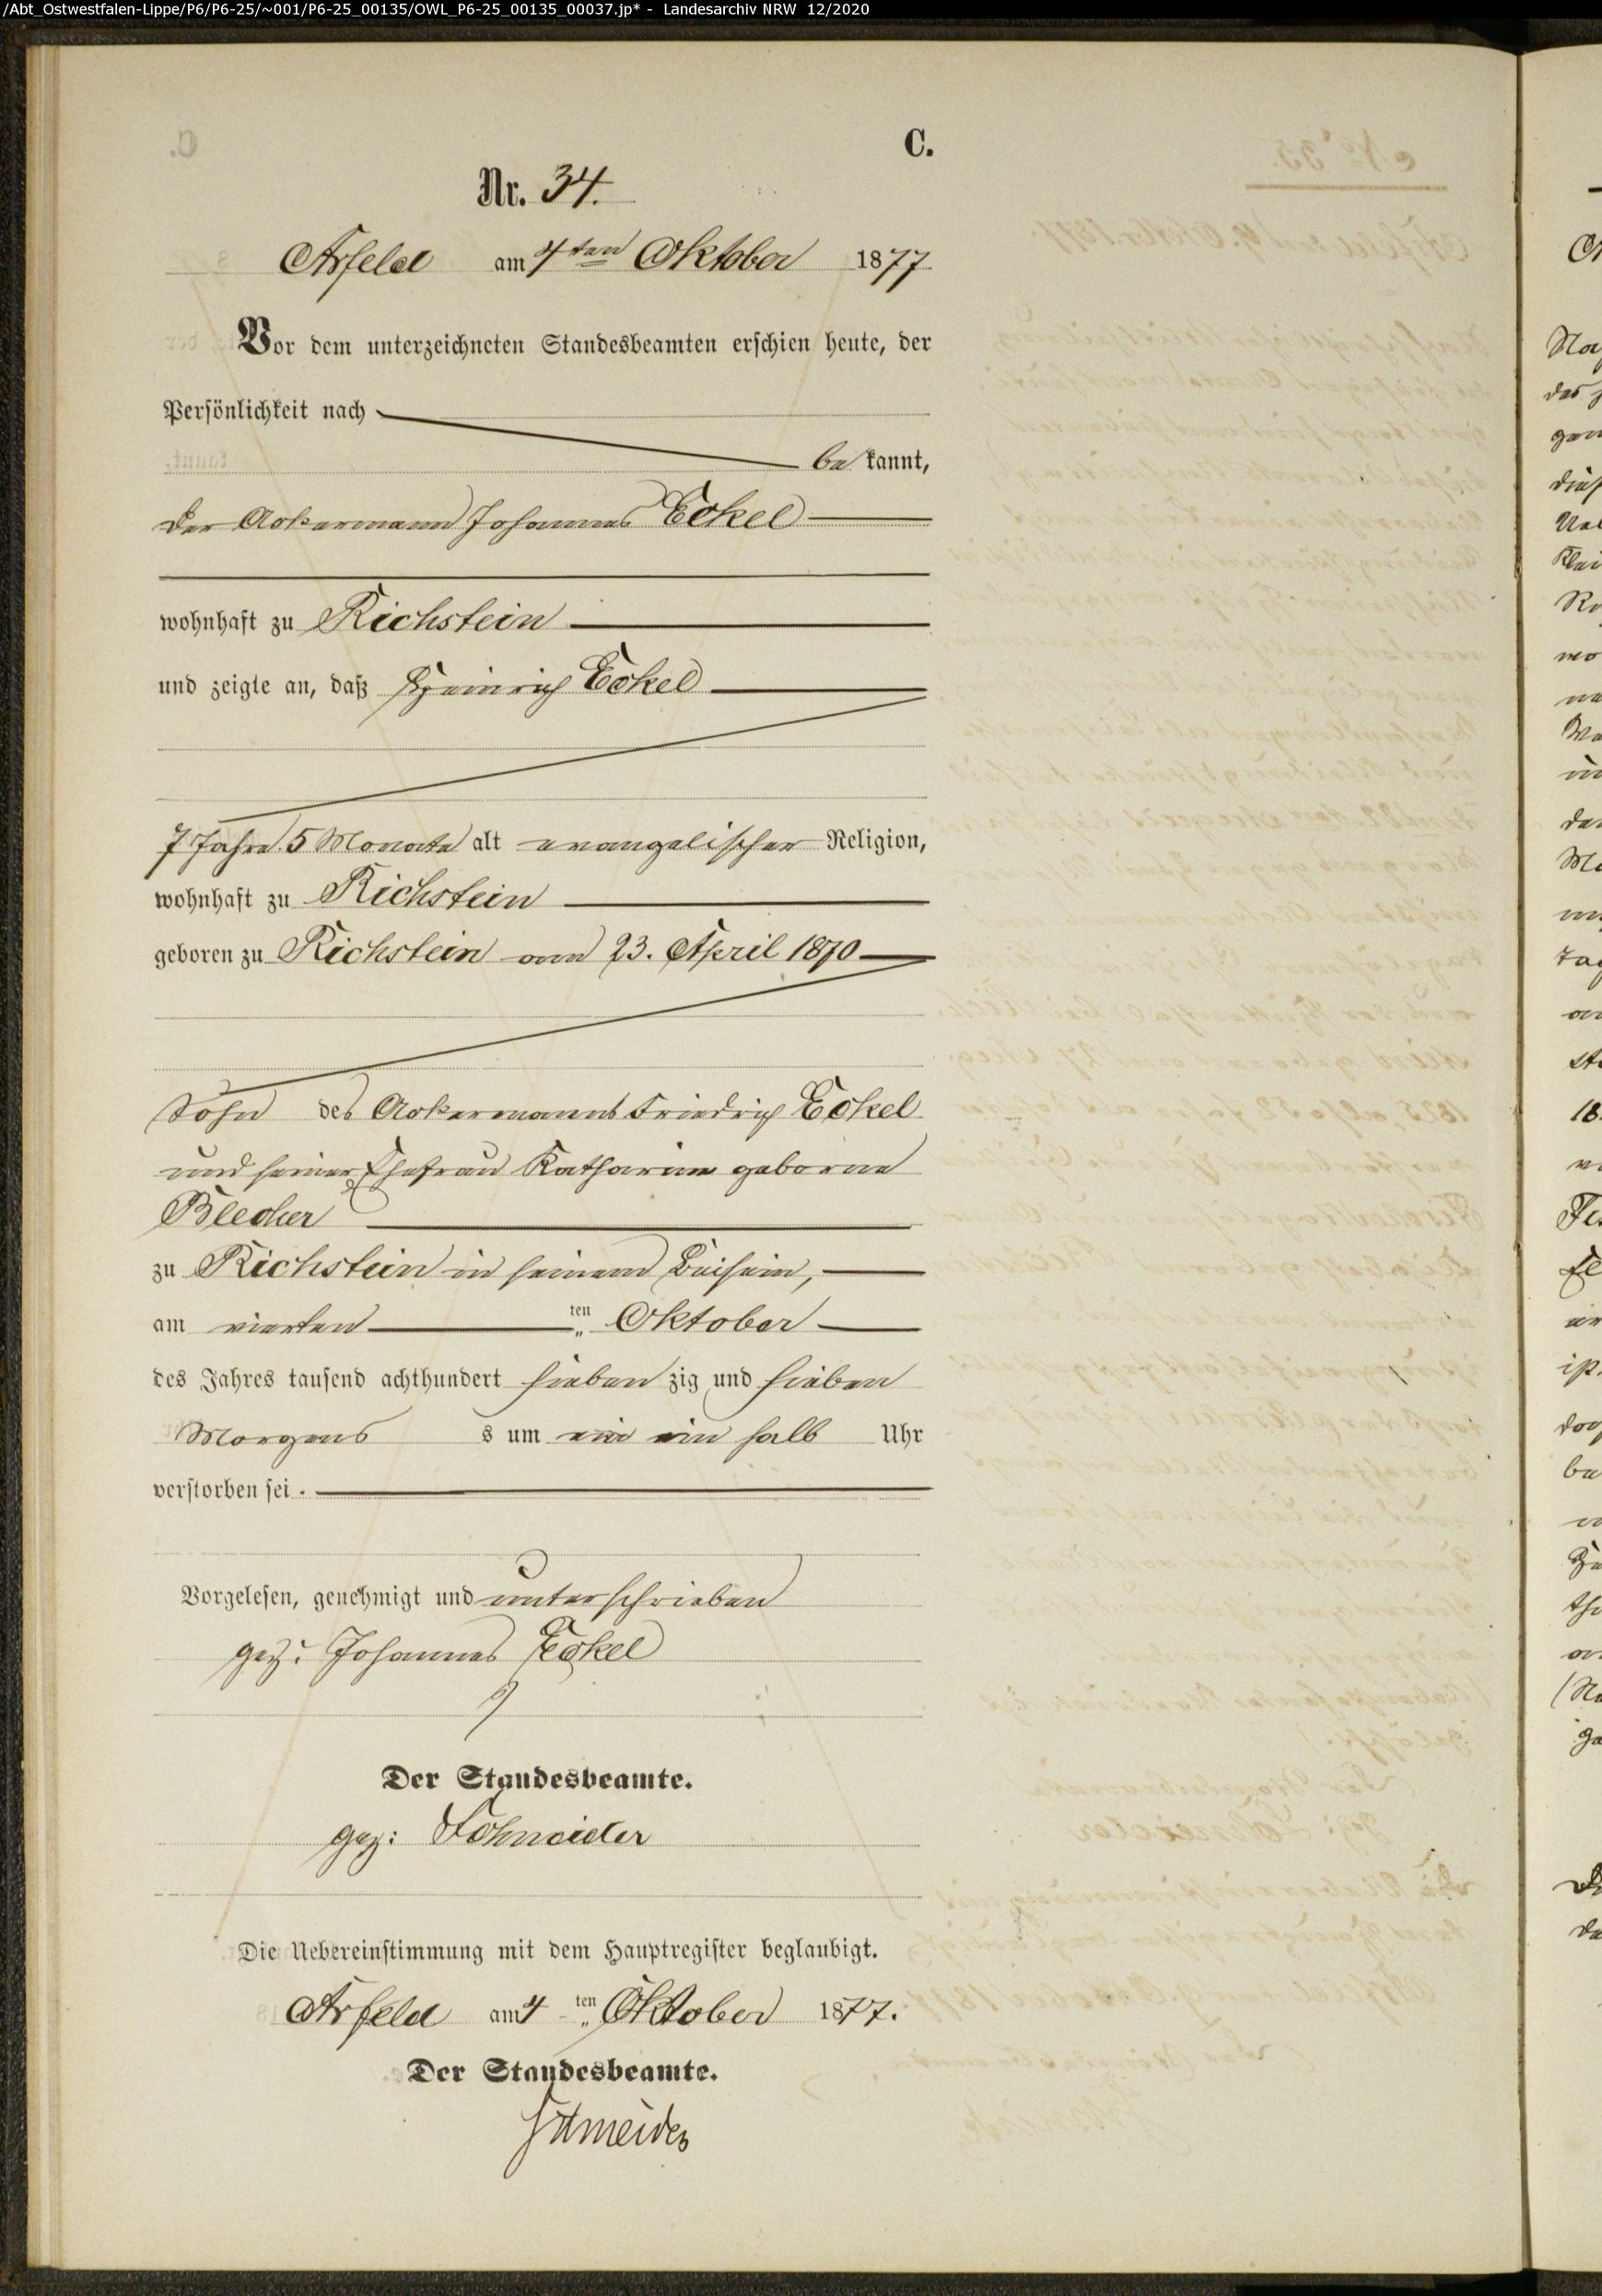 /Abt_Ostwestfalen-Lippe/P6/P6-25/~001/P6-25_00135/OWL_P6-25_00135_00037.jp* - Landesarchiv NRW 12/2020
C.
Nr. 34.
Arfeld am 4ten Oktober 1877
Vor dem unterzeichneten Standesbeamten erschien heute, der
Persönlichkeit nach
be kannt,
der Ackermann Johannes Eckel
wohnhaft zu Richstein
und zeigte an, daß Heinrich Eckel
7 Jahre 5 Monate alt evangelischer Religion,
wohnhaft zu Richstein
geboren zu Richstein am 23. April 1870
Sohn des Ackermanns Friedrich Eckel
und seiner Ehefrau Katharine geborne
Blecher
zu Richstein in seinem Beisein,
am vierten ten Oktober
des Jahres tausend achthundert sieben zig und sieben
Morgens s um ein halb Uhr
verstorben sei.
Vorgelesen, genehmigt und unterschrieben
gez: Johannes Eckel
Der Standesbeamte.
gez: Schneider
Die Uebereinstimmung mit dem Hauptregister beglaubigt.
Arfeld am 4 ten Oktober 1877.
Der Standesbeamte.
Schneider